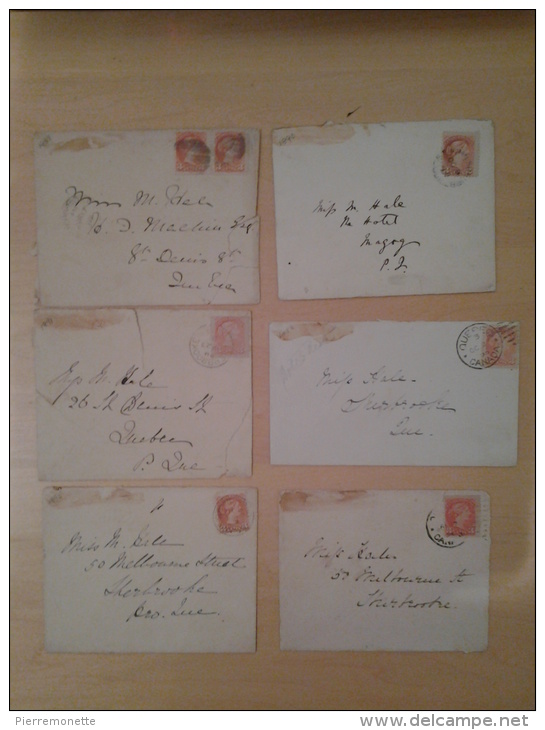 M. Hale
St Denis St
Quebec
Miss M. Hale
Hotel
Magog
P. Q.
Miss M. Hale
26 St Denis St
Quebec
P. Que
Miss Hale
Sherbrooke
Que.
CANADA
Miss M. Hale
50 Melbourne Street
Sherbrooke
Pro. Que
Miss Hale
50 Melbourne St
Sherbrooke
Pierremonette
www.delcampe.net